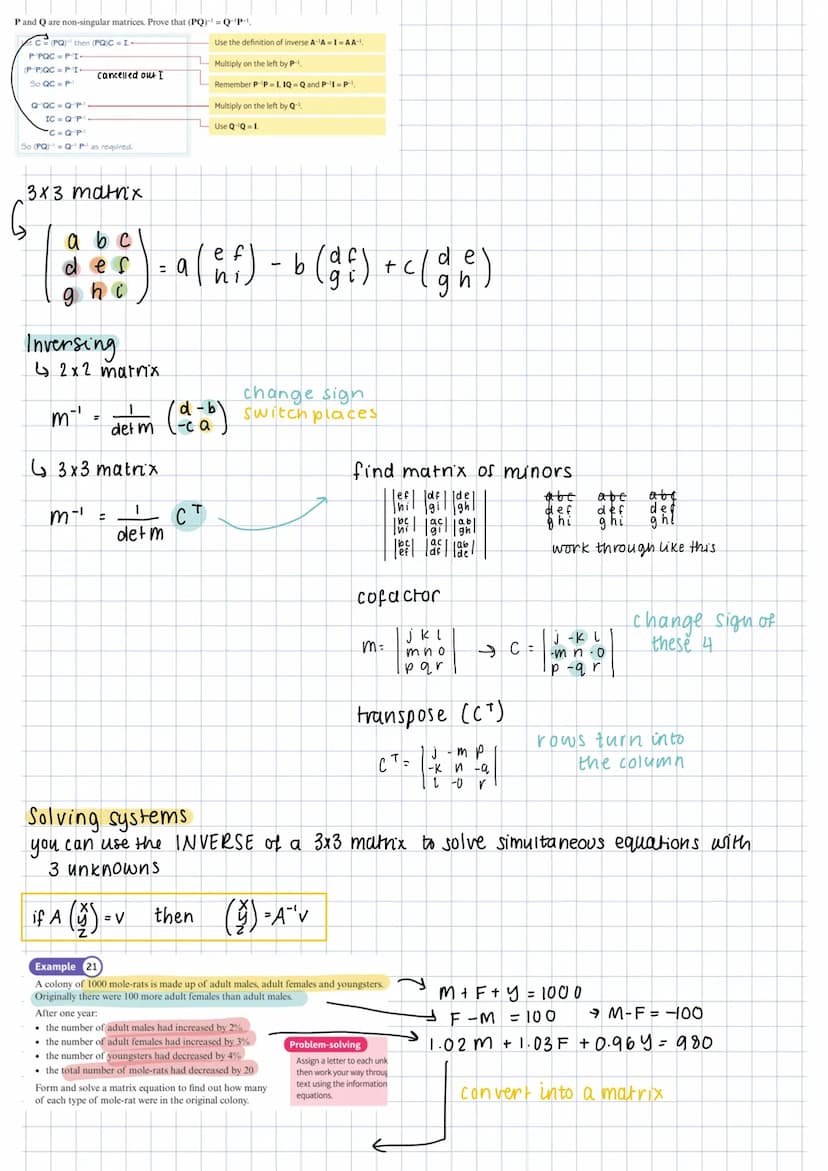 P and Q are non-singular matrices. Prove that (PQ)⁻¹ = Q⁻¹P⁻¹.
Let C = (PQ)⁻¹ then (PQ)C = I.
Use the definition of inverse A⁻¹A = I = AA⁻¹.
P⁻¹PQC = P⁻¹I
Multiply on the left by P⁻¹.
(P⁻¹P)QC = P⁻¹I
cancelled out I
Remember P⁻¹P = I, IQ = Q and P⁻¹I = P⁻¹.
So QC = P⁻¹
Q⁻¹QC = Q⁻¹P⁻¹
Multiply on the left by Q⁻¹.
IC = Q⁻¹P⁻¹
Use Q⁻¹Q = I.
C = Q⁻¹P⁻¹
So (PQ)⁻¹ = Q⁻¹ P⁻¹ as required.
3x3 matrix
a b c
d e f = a (e f) - b (d f) + c (d e)
g h i (h i) (g i) (g h)
Inversing
↳ 2x2 matrix
m⁻¹ = 1 (d -b)
det m (-c a)
change sign
switch places
↳ 3x3 matrix
m⁻¹ = 1 Cᵀ
det m
find matrix of minors
|ef| |df| |de|
|hi| |gi| |gh|
|bc| |ac| |ab|
|hi| |gi| |gh|
|bc| |ac| |ab|
|ef| |df| |de|
a b c a b c a b c
d e f d e f d e f
g h i g h i g h i
work through like this
cofactor
j k l j -k l
m = m n o → C = -m n -o
p q r p -q r
change sign of
these 4
transpose (Cᵀ)
j -m p
Cᵀ = -k n -q
l -o r
rows turn into
the column
Solving systems
you can use the INVERSE of a 3x3 matrix to solve simultaneous equations with
3 unknowns
if A (x y z) = v then (x y z) = A⁻¹v
Example 21
A colony of 1000 mole-rats is made up of adult males, adult females and youngsters.
Originally there were 100 more adult females than adult males.
After one year:
• the number of adult males had increased by 2%
• the number of adult females had increased by 3%
• the number of youngsters had decreased by 4%
• the total number of mole-rats had decreased by 20
Form and solve a matrix equation to find out how many
of each type of mole-rat were in the original colony.
Problem-solving
Assign a letter to each unk
then work your way throug
text using the information
equations.
M + F + y = 1000
F - M = 100 → M - F = -100
1.02 M + 1.03 F + 0.96 y = 980
convert into a matrix